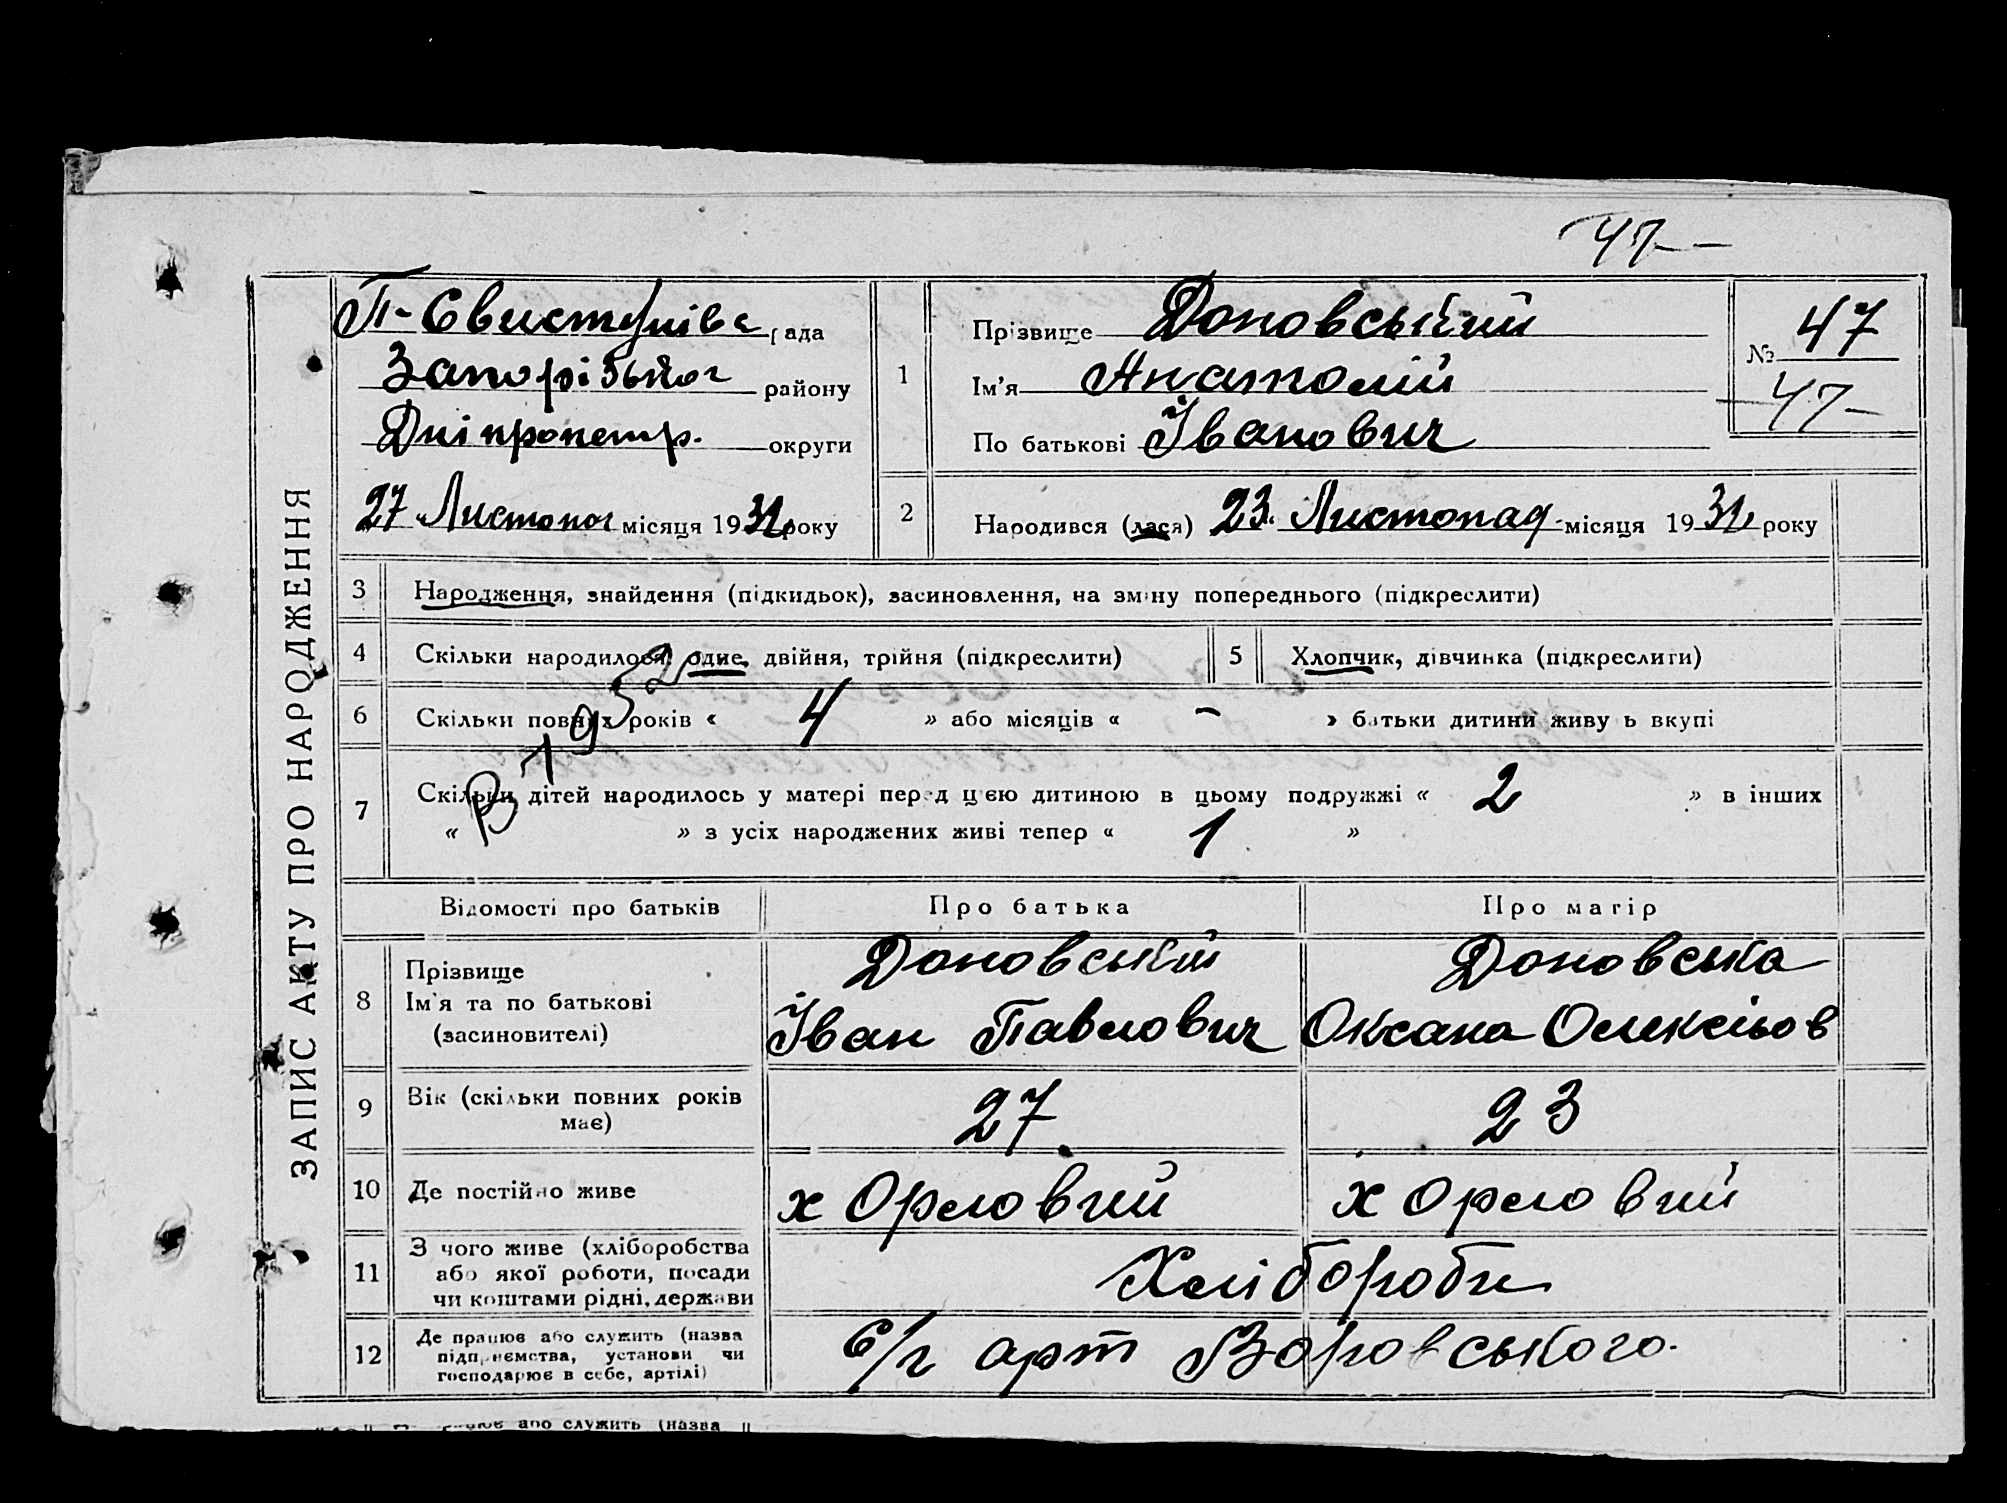 47
П-Свистунівс рада
Запорізького району
Дніпропетр. округи
27 Листопад місяця 1932 року
1
Прізвище Доновський
Ім'я Анатолій
По батькові Іванович
№ 47
47
2
Народився (лася) 23 Листопад місяця 1932 року
ЗАПИС АКТУ ПРО НАРОДЖЕННЯ
3 Народження, знайдення (підкидьок), засиновлення, на зміну попереднього (підкреслити)
4 Скільки народилося: одне, двійня, трійня (підкреслити) 5 Хлопчик, дівчинка (підкреслити)
6 Скільки повних років « 4 » або місяців « - » батьки дитини живуть вкупі
7 Скільки дітей народилось у матері перед цією дитиною в цьому подружжі « 2 » в інших
« » з усіх народжених живі тепер « 1 »
В 1952
Відомості про батьків Про батька Про матір
8 Прізвище
Ім'я та по батькові
(засиновителі)
Доновський
Іван Павлович
Доновська
Оксана Олексіьов
9 Вік (скільки повних років
має)
27 23
10 Де постійно живе х Орловий х Орловий
11 З чого живе (хліборобства
або якої роботи, посади
чи коштами рідні, держави
Хлібороби
12 Де працює або служить (назва
підприємства, установи чи
господарює в себе, артілі)
с/г арт Воровського.
або служить (назва